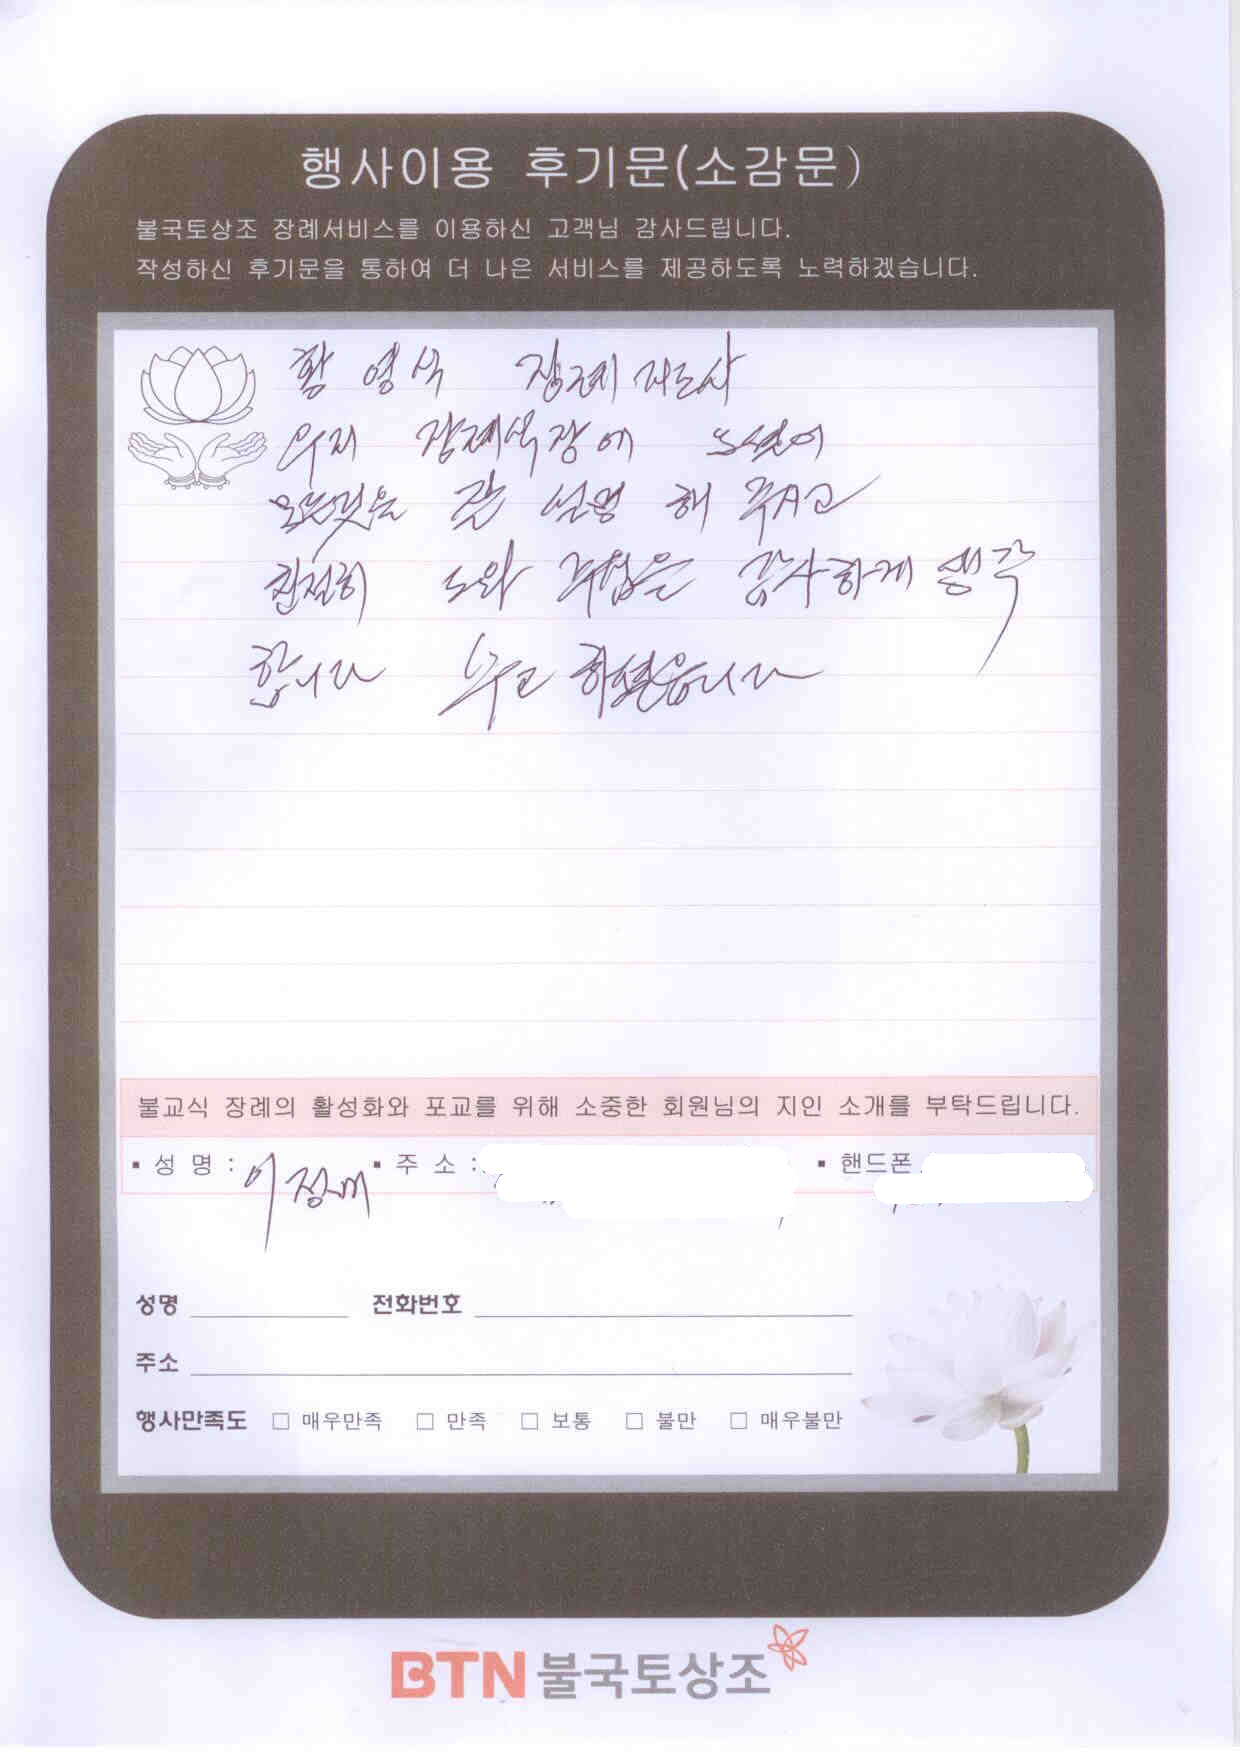 행사이용 후기문(소감문)
불국토상조 장례서비스를 이용하신 고객님 감사드립니다.
작성하신 후기문을 통하여 더 나은 서비스를 제공하도록 노력하겠습니다.
황영식 장례지도사
우리 장례식장에
모든것을 잘 설명 해 주시고
친절히 도와 주셨음은 감사하게 생각
합니다 수고 하셨읍니다
불교식 장례의 활성화와 포교를 위해 소중한 회원님의 지인 소개를 부탁드립니다.
▪ 성 명 : 이정애 ▪ 주 소 : ▪ 핸드폰
성명 전화번호
주소
행사만족도 □ 매우만족 □ 만족 □ 보통 □ 불만 □ 매우불만
BTN 불국토상조